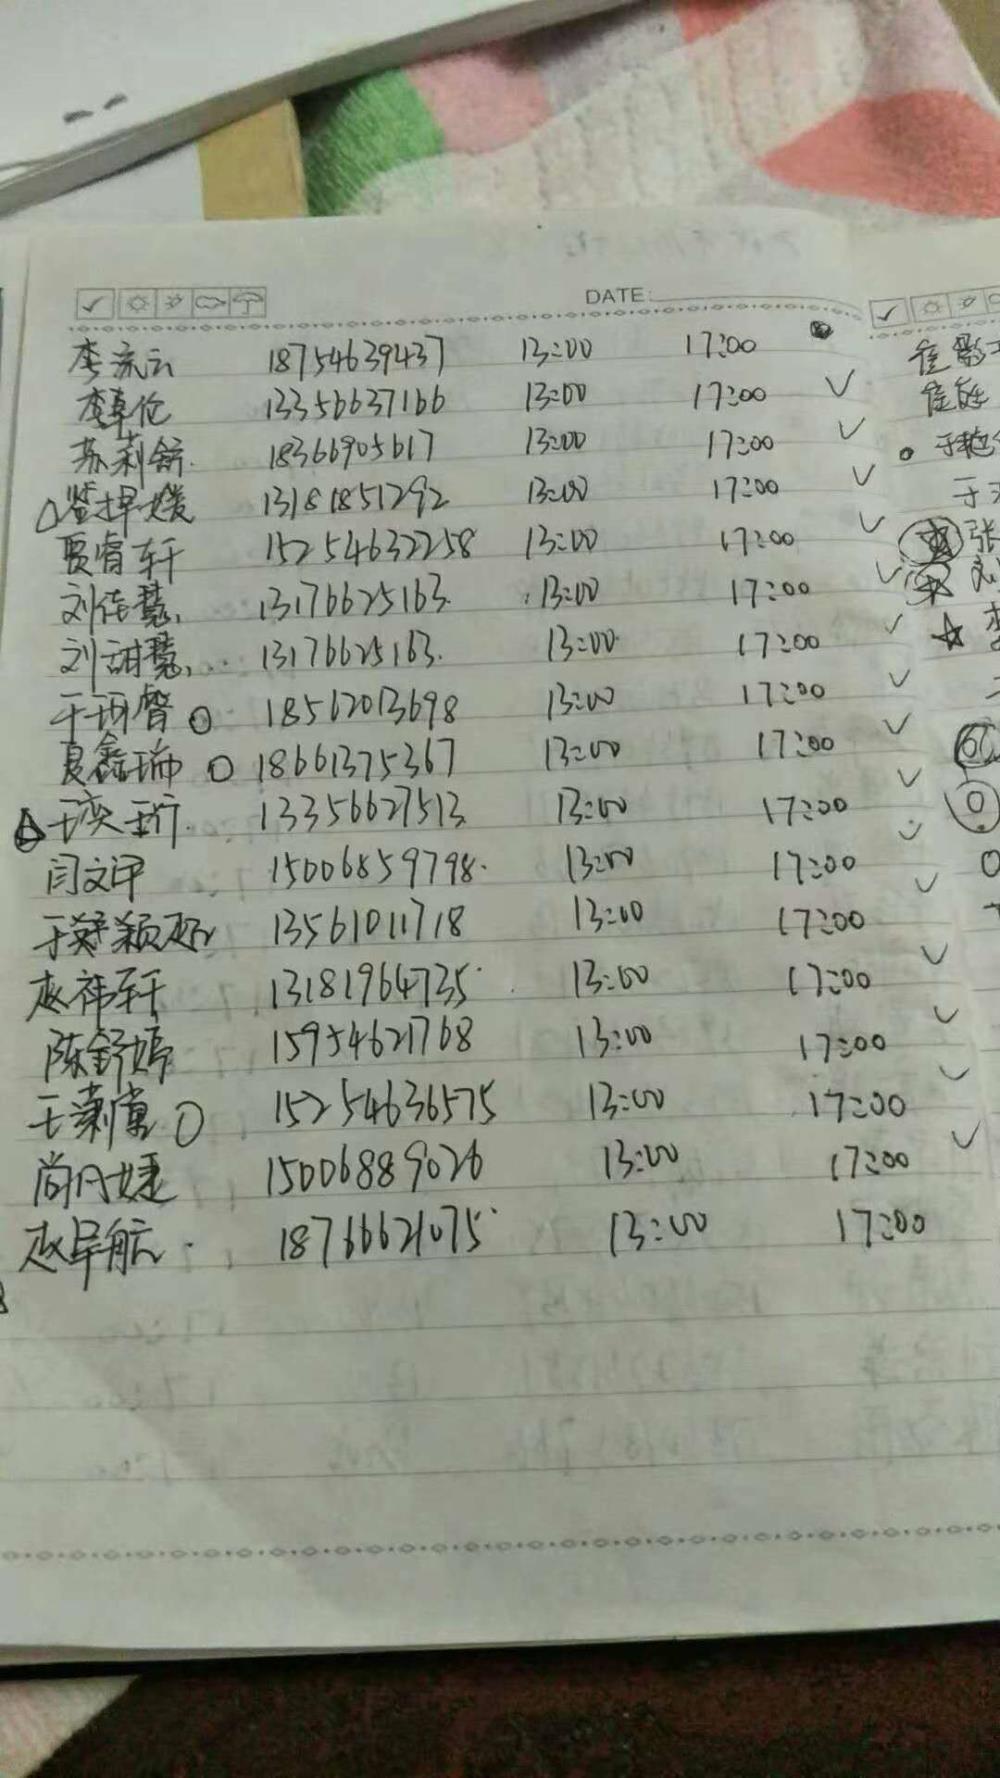 DATE:
李流云 18754639437 13:00 17:00
李卓伦 13356637166 13:00 17:00 ✓
苏莉舒. 18366905617 13:00 17:00 ✓
媛 13181851292 13:00 17:00 ✓
贾睿轩 15254632258 13:00 17:00 ✓
刘佳慧 13176625163. 13:00 17:00 ✓
刘甜慧 13176625163. 13:00 17:00 ✓
于 18562013698 13:00 17:00 ✓
夏鑫瑞 18661375367 13:00 17:00 ✓
王奕珩. 13356627513 13:00 17:00 ✓
闫文 15006859798. 13:00 17:00 ✓
于 颖 13561011718 13:00 17:00 ✓
赵祎轩 13181964735 13:00 17:00 ✓
陈舒嫣 15954621768 13:00 17:00 ✓
王 15254636575 13:00 17:00 ✓
尚凡婕 15006889026 13:00 17:00 ✓
赵早航 18766621075 13:00 17:00
崔
崔
于艳
于
张
刘
李